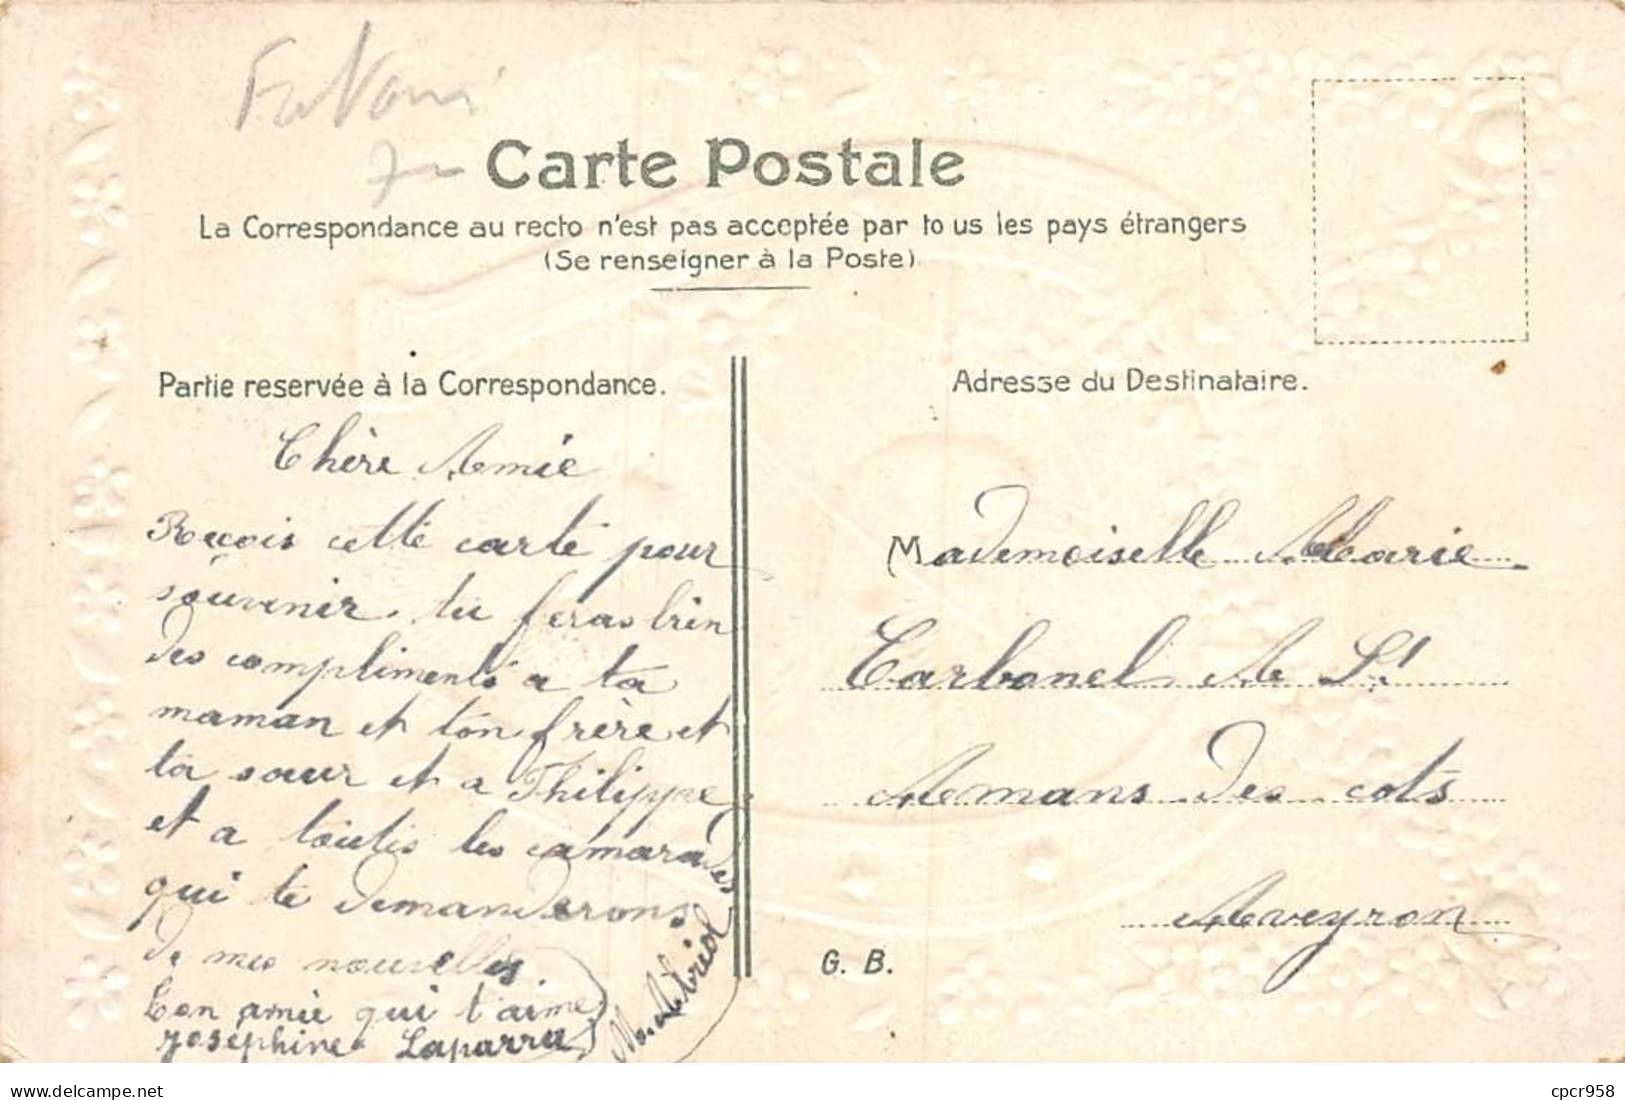 Carte Postale
La Correspondance au recto n'est pas acceptée par to us les pays étrangers
(Se renseigner à la Poste)
Partie reservée à la Correspondance.
Chère Amie
Recois cette carte pour
souvenir. tu feras bien
des compliments a ta
maman et ton frère et
ta sœur et a Philippe
et a toutes les camarades
qui te demanderons
de mes nouvelles
ton amie qui t'aime
Joséphine Laparra
Adresse du Destinataire.
Mademoiselle Marie
Carbonel A St
Amans des cots
Aveyron
G. B.
www.delcampe.net
cpcr958